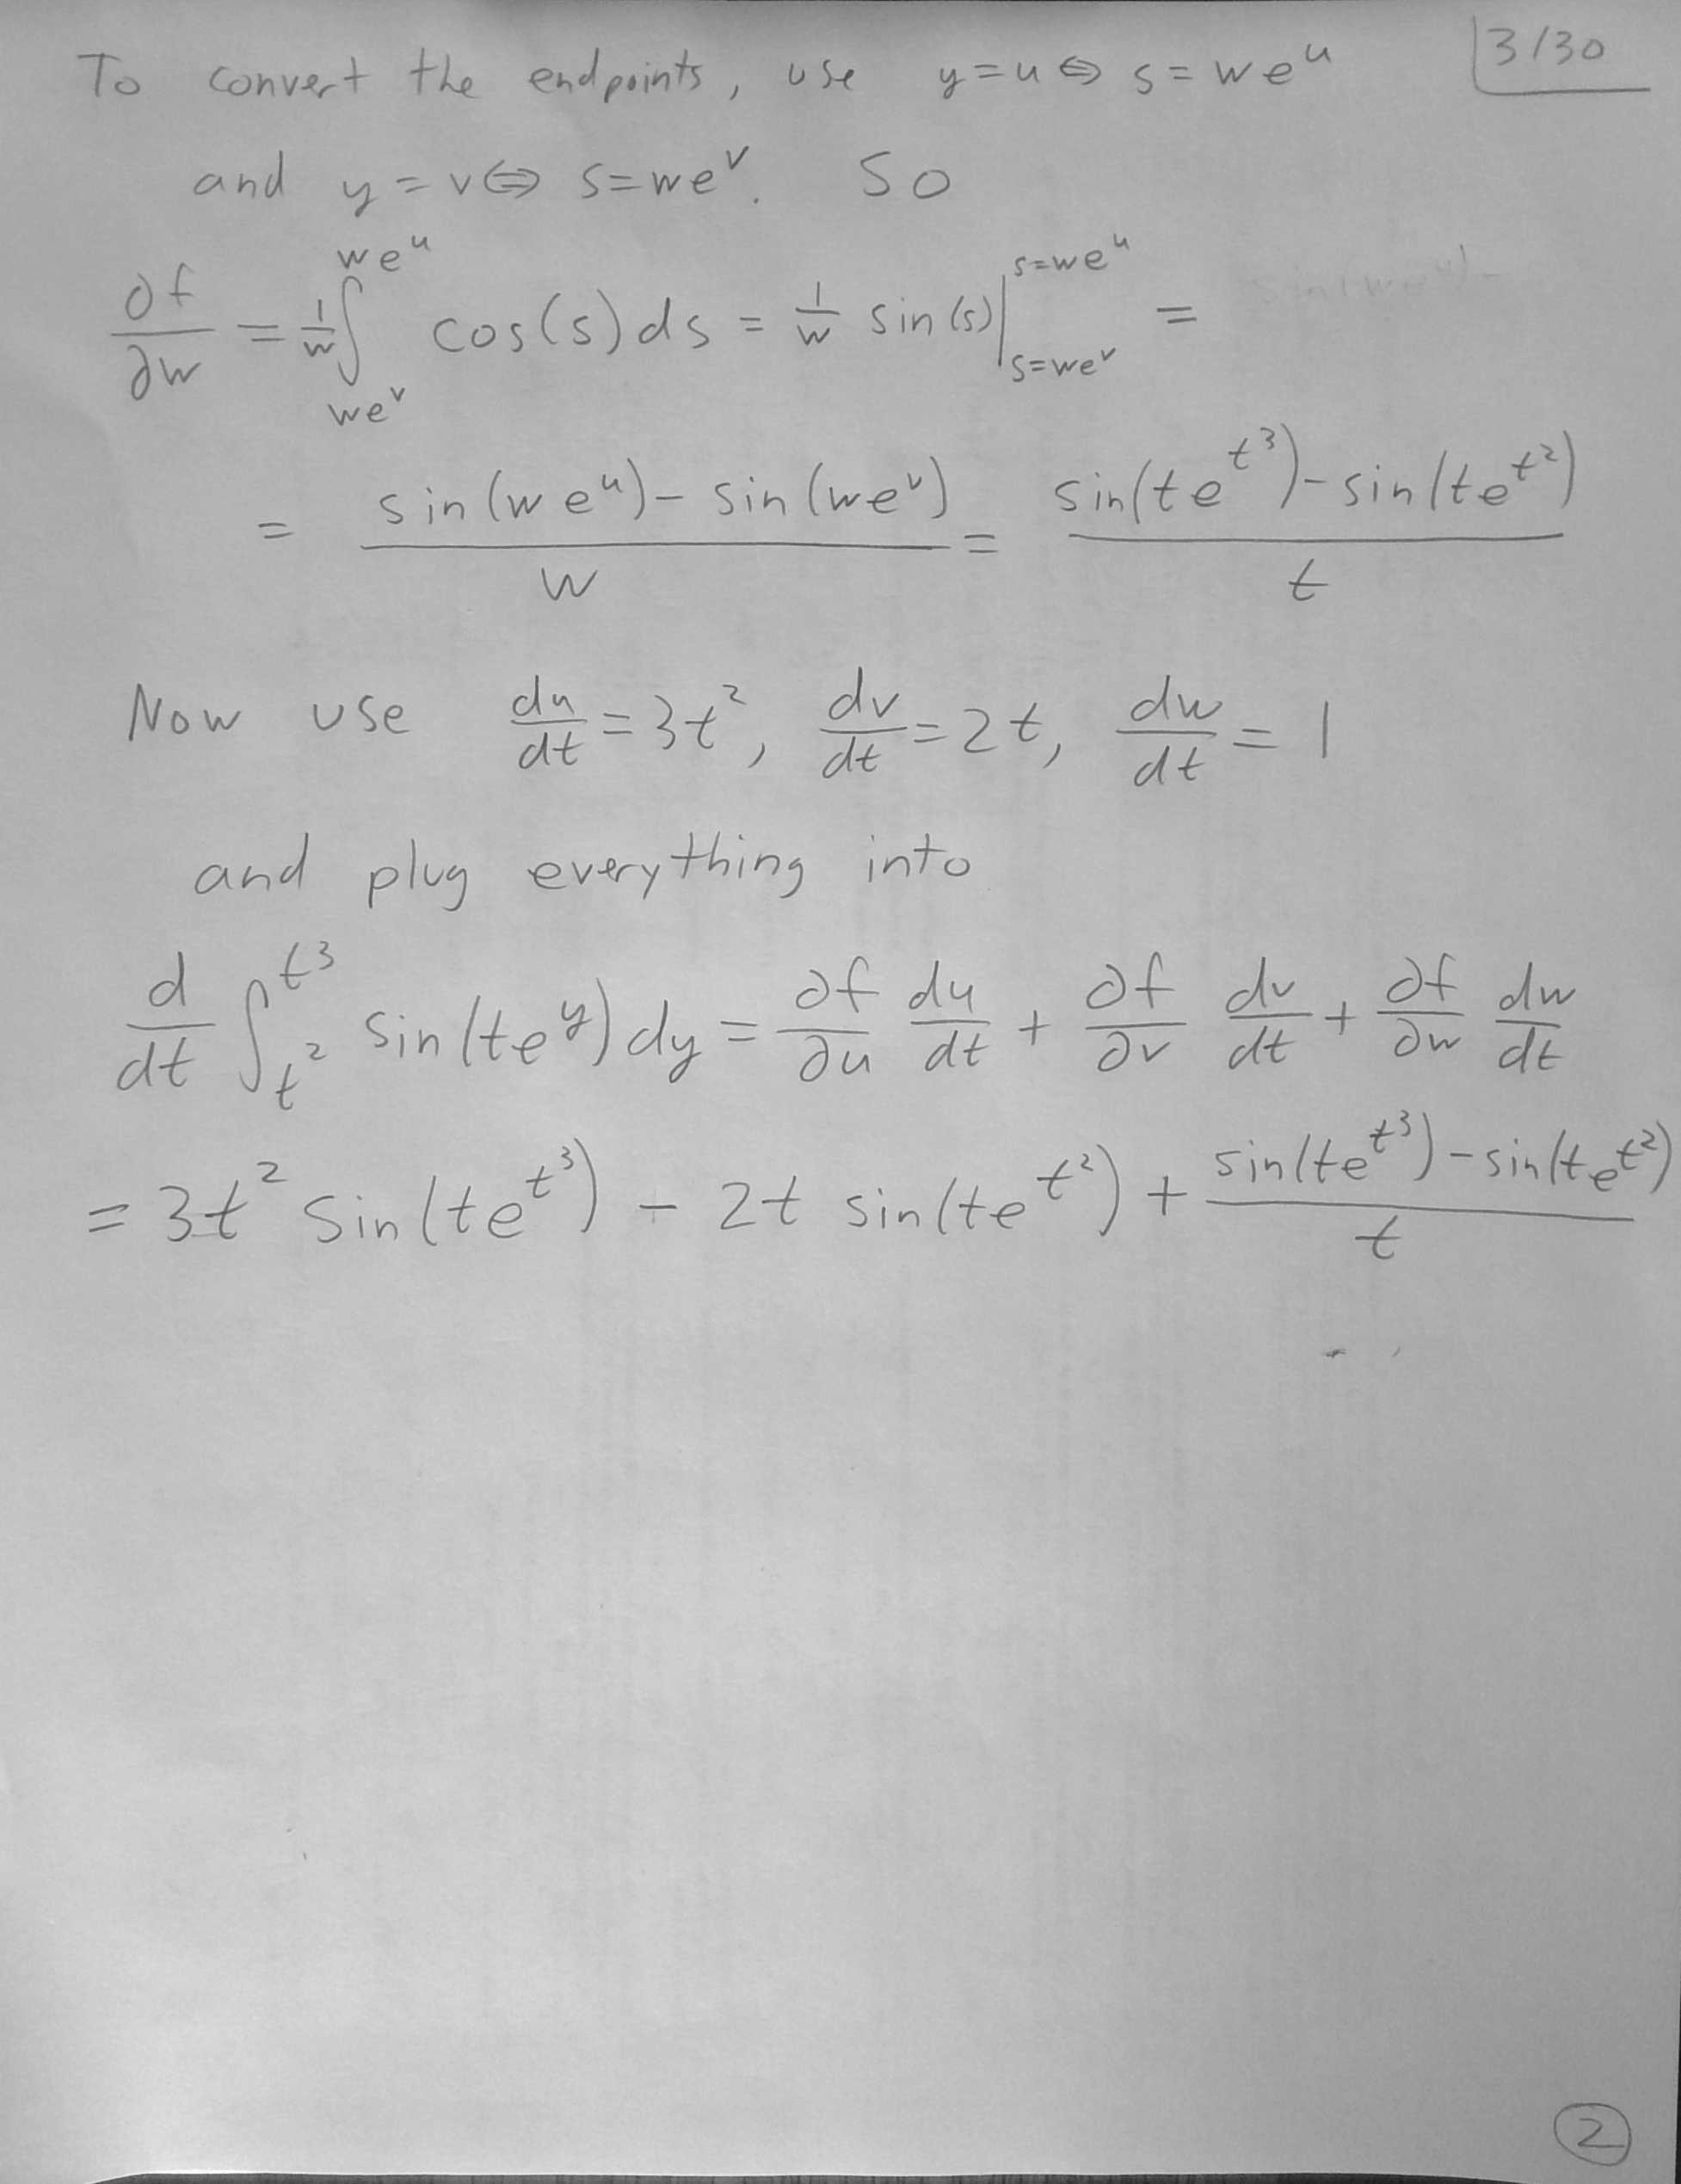 To convert the endpoints, use y=u⇔ s=we^u 3/30
and y=v⇔ s=we^v. So
∂f/∂w = 1/w ∫_{we^v}^{we^u} cos(s)ds = 1/w sin(s)|_{s=we^v}^{s=we^u} =
= (sin(we^u)-sin(we^v))/w = (sin(te^{t^3})-sin(te^{t^2}))/t
Now use du/dt=3t^2, dv/dt=2t, dw/dt=1
and plug everything into
d/dt ∫_{t^2}^{t^3} sin(te^y)dy = ∂f/∂u du/dt + ∂f/∂v dv/dt + ∂f/∂w dw/dt
= 3t^2 sin(te^{t^3}) - 2t sin(te^{t^2}) + (sin(te^{t^3})-sin(te^{t^2}))/t
2